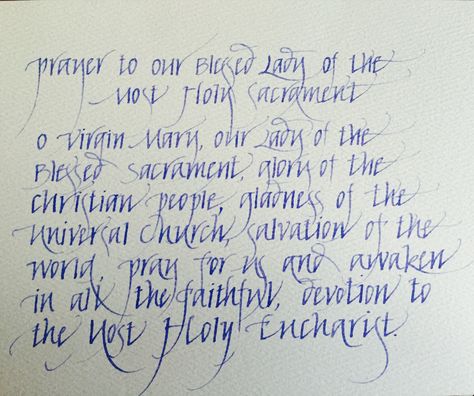 prayer to our Blessed Lady of the
Most Holy Sacrament
O Virgin Mary, our Lady of the
Blessed Sacrament, glory of the
christian people, gladness of the
universal Church, salvation of the
world, pray for us and awaken
in all the faithful, devotion to
the Most Holy Eucharist.